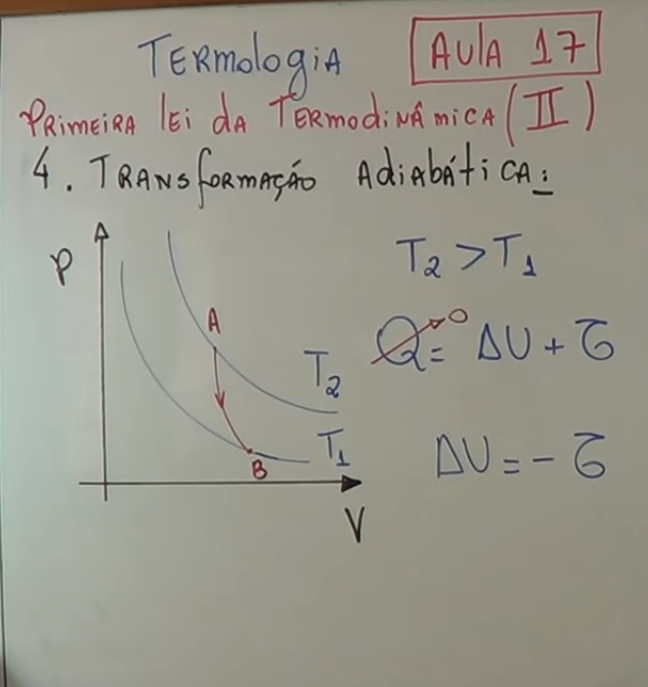 TERMOLOGIA
AULA 17
PRIMEIRA LEI DA TERMODINÂMICA (II)
4. TRANSFORMAÇÃO ADIABÁTICA:
P
T₂ > T₁
A
Q = ΔU + τ
0
T₂
T₁
ΔU = - τ
B
V